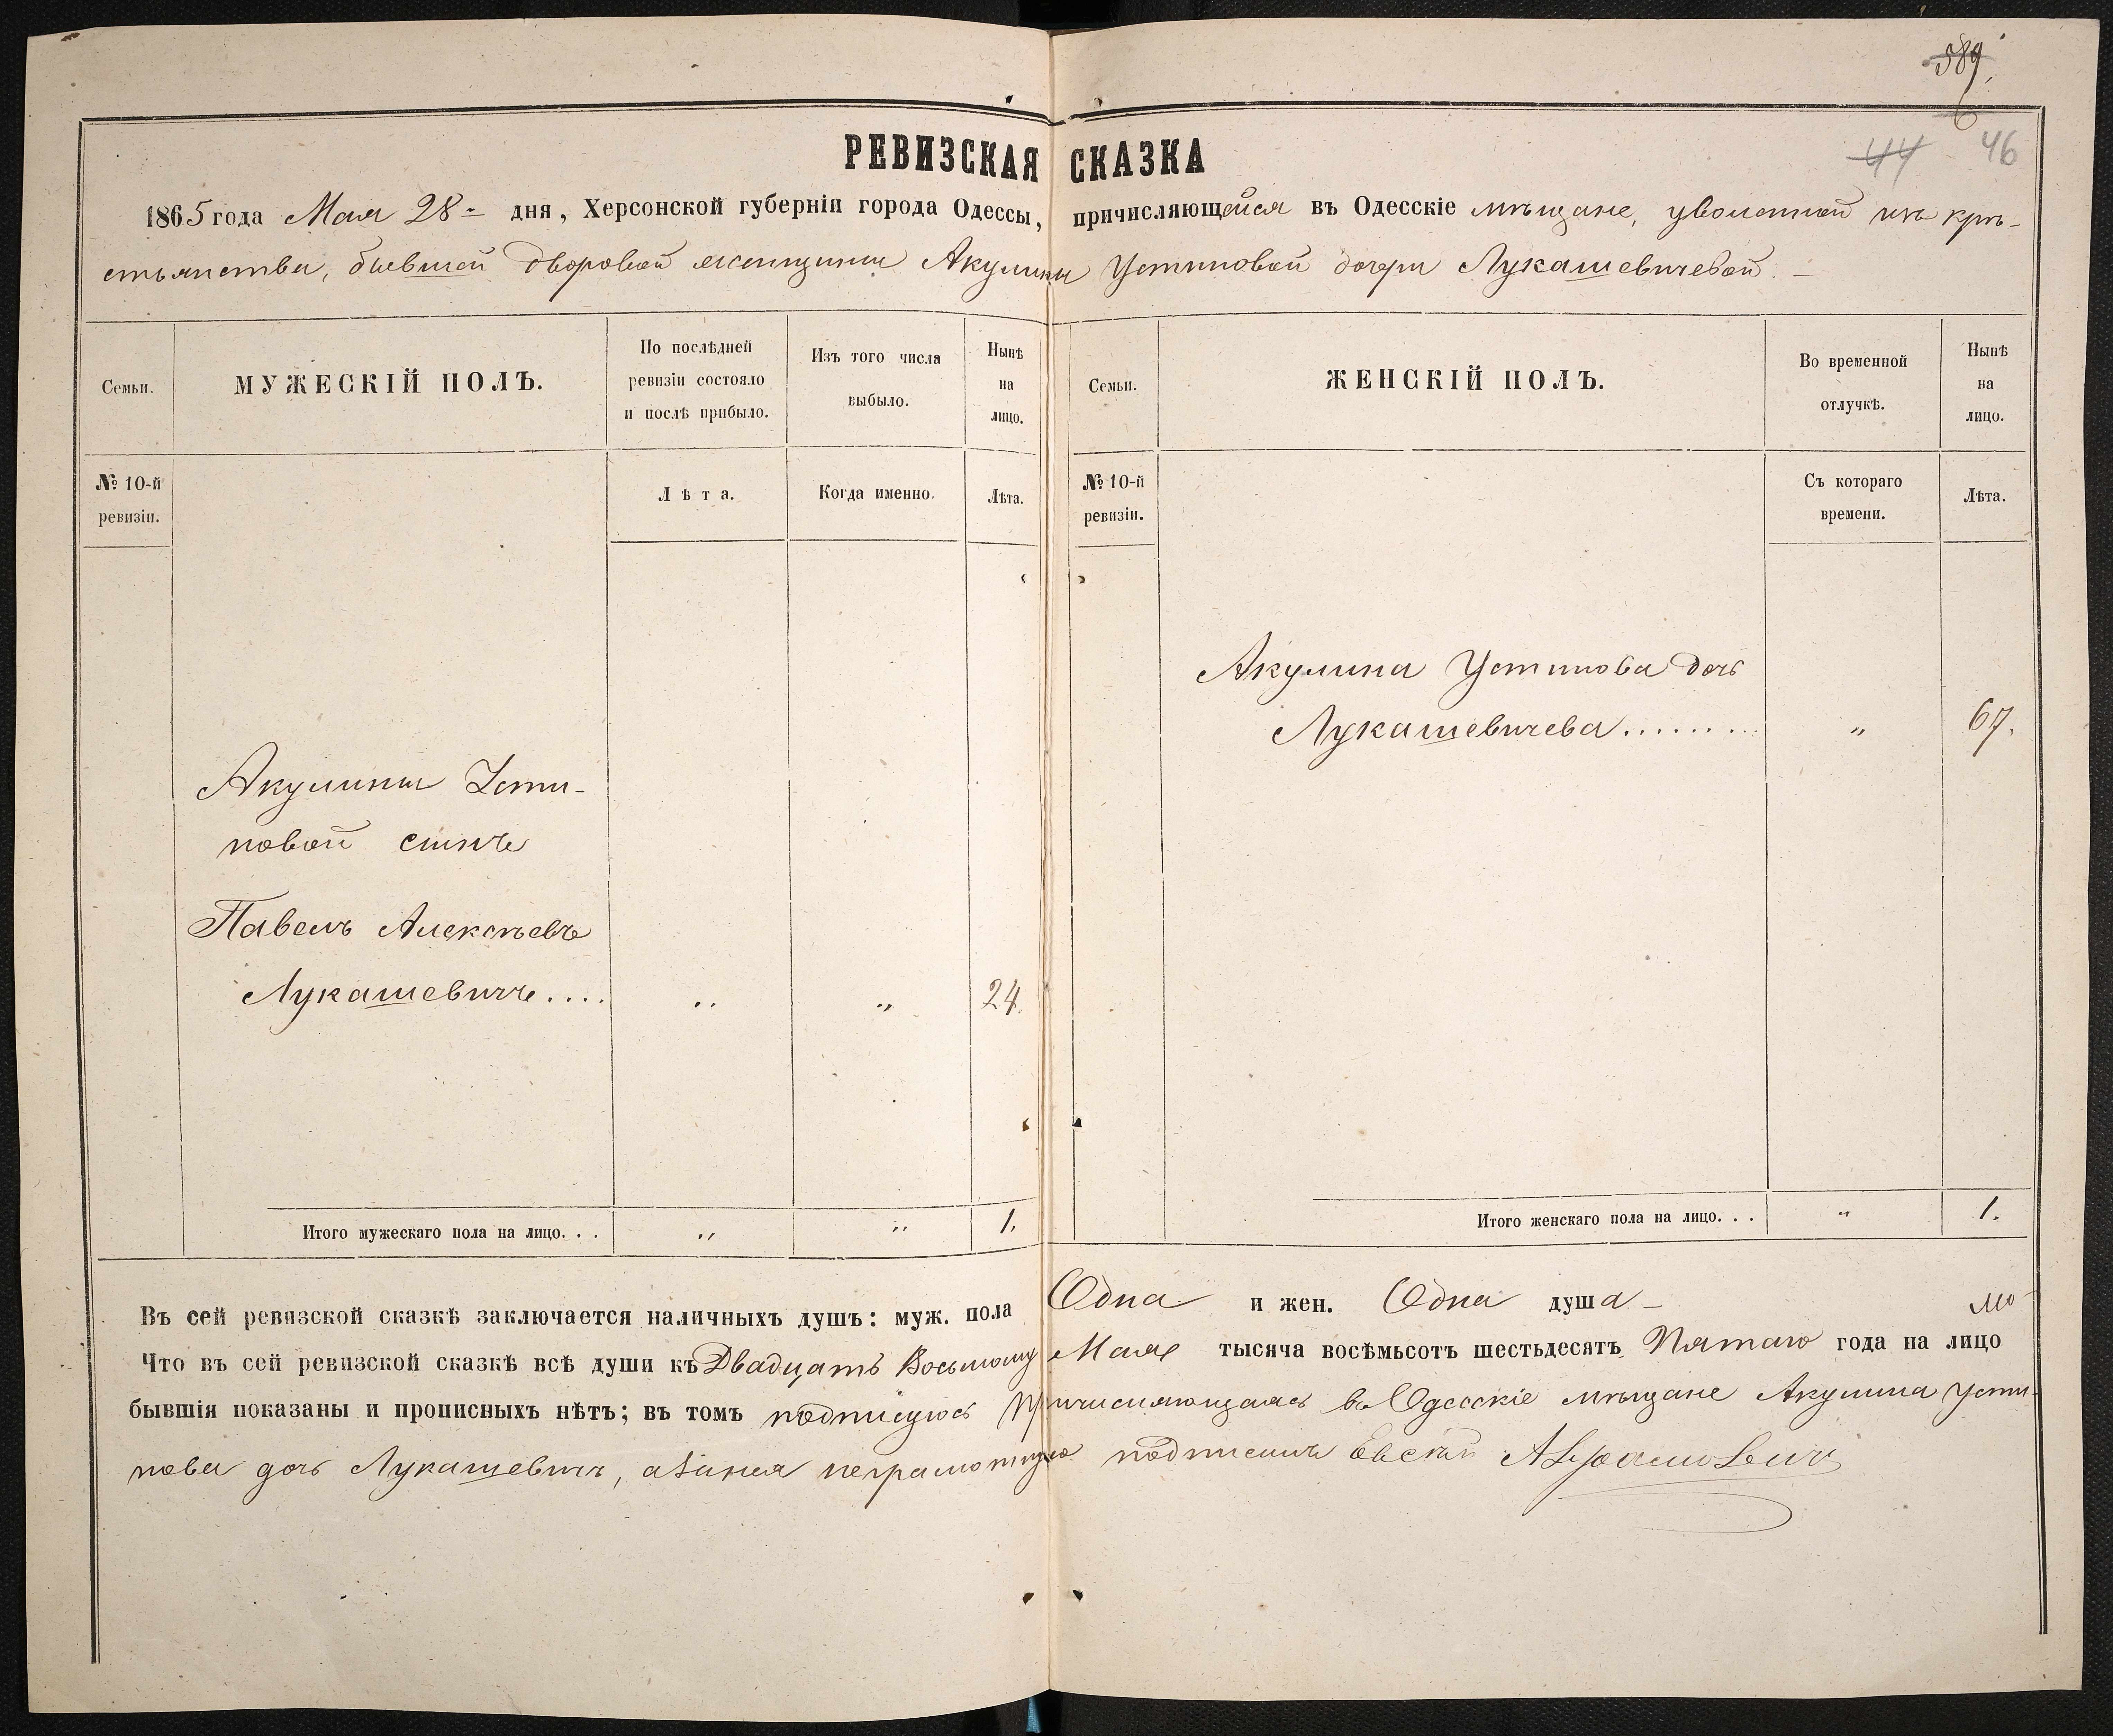 589.
6
44 46
РЕВИЗСКАЯ СКАЗКА
1865 года Мая 28 - дня, Херсонской губерніи города Одессы, причисляющейся въ Одесскіе мѣщане, уволенной изъ кре-
стьянства, бывшей дворовой женщины Акулины Устиновой дочери Лукашевичевой. -
Семьи.
МУЖЕСКІЙ ПОЛЪ.
По послѣдней ревизіи состояло и послѣ прибыло.
Изъ того числа выбыло.
Нынѣ на лицо.
Семьи.
ЖЕНСКІЙ ПОЛЪ.
Во временной отлучкѣ.
Нынѣ на лицо.
№ 10-й ревизіи.
Лѣта.
Когда именно.
Лѣта.
№ 10-й ревизіи.
Съ котораго времени.
Лѣта.
Акулина Устинова дочь
Лукашевичева......... " 67.
Акулины Усти-
новой сынъ
Павелъ Алексѣевъ
Лукашевичъ.... " " 24.
Итого мужескаго пола на лицо. . . " " 1.
Итого женскаго пола на лицо. . . " 1.
Въ сей ревизской сказкѣ заключается наличныхъ душъ: муж. пола Одна и жен. Одна душа -
Что въ сей ревизской сказкѣ всѣ души къ Двадцать Восьмому Мая тысяча восемьсотъ шестьдесятъ Пятаго года на лицо
бывшія показаны и прописныхъ нѣтъ; въ томъ подписуюсь Причисляющаясь въ Одесскіе мѣщане Акулина Усти-
нова дочь Лукашевичъ, а занея неграмотную подписалъ